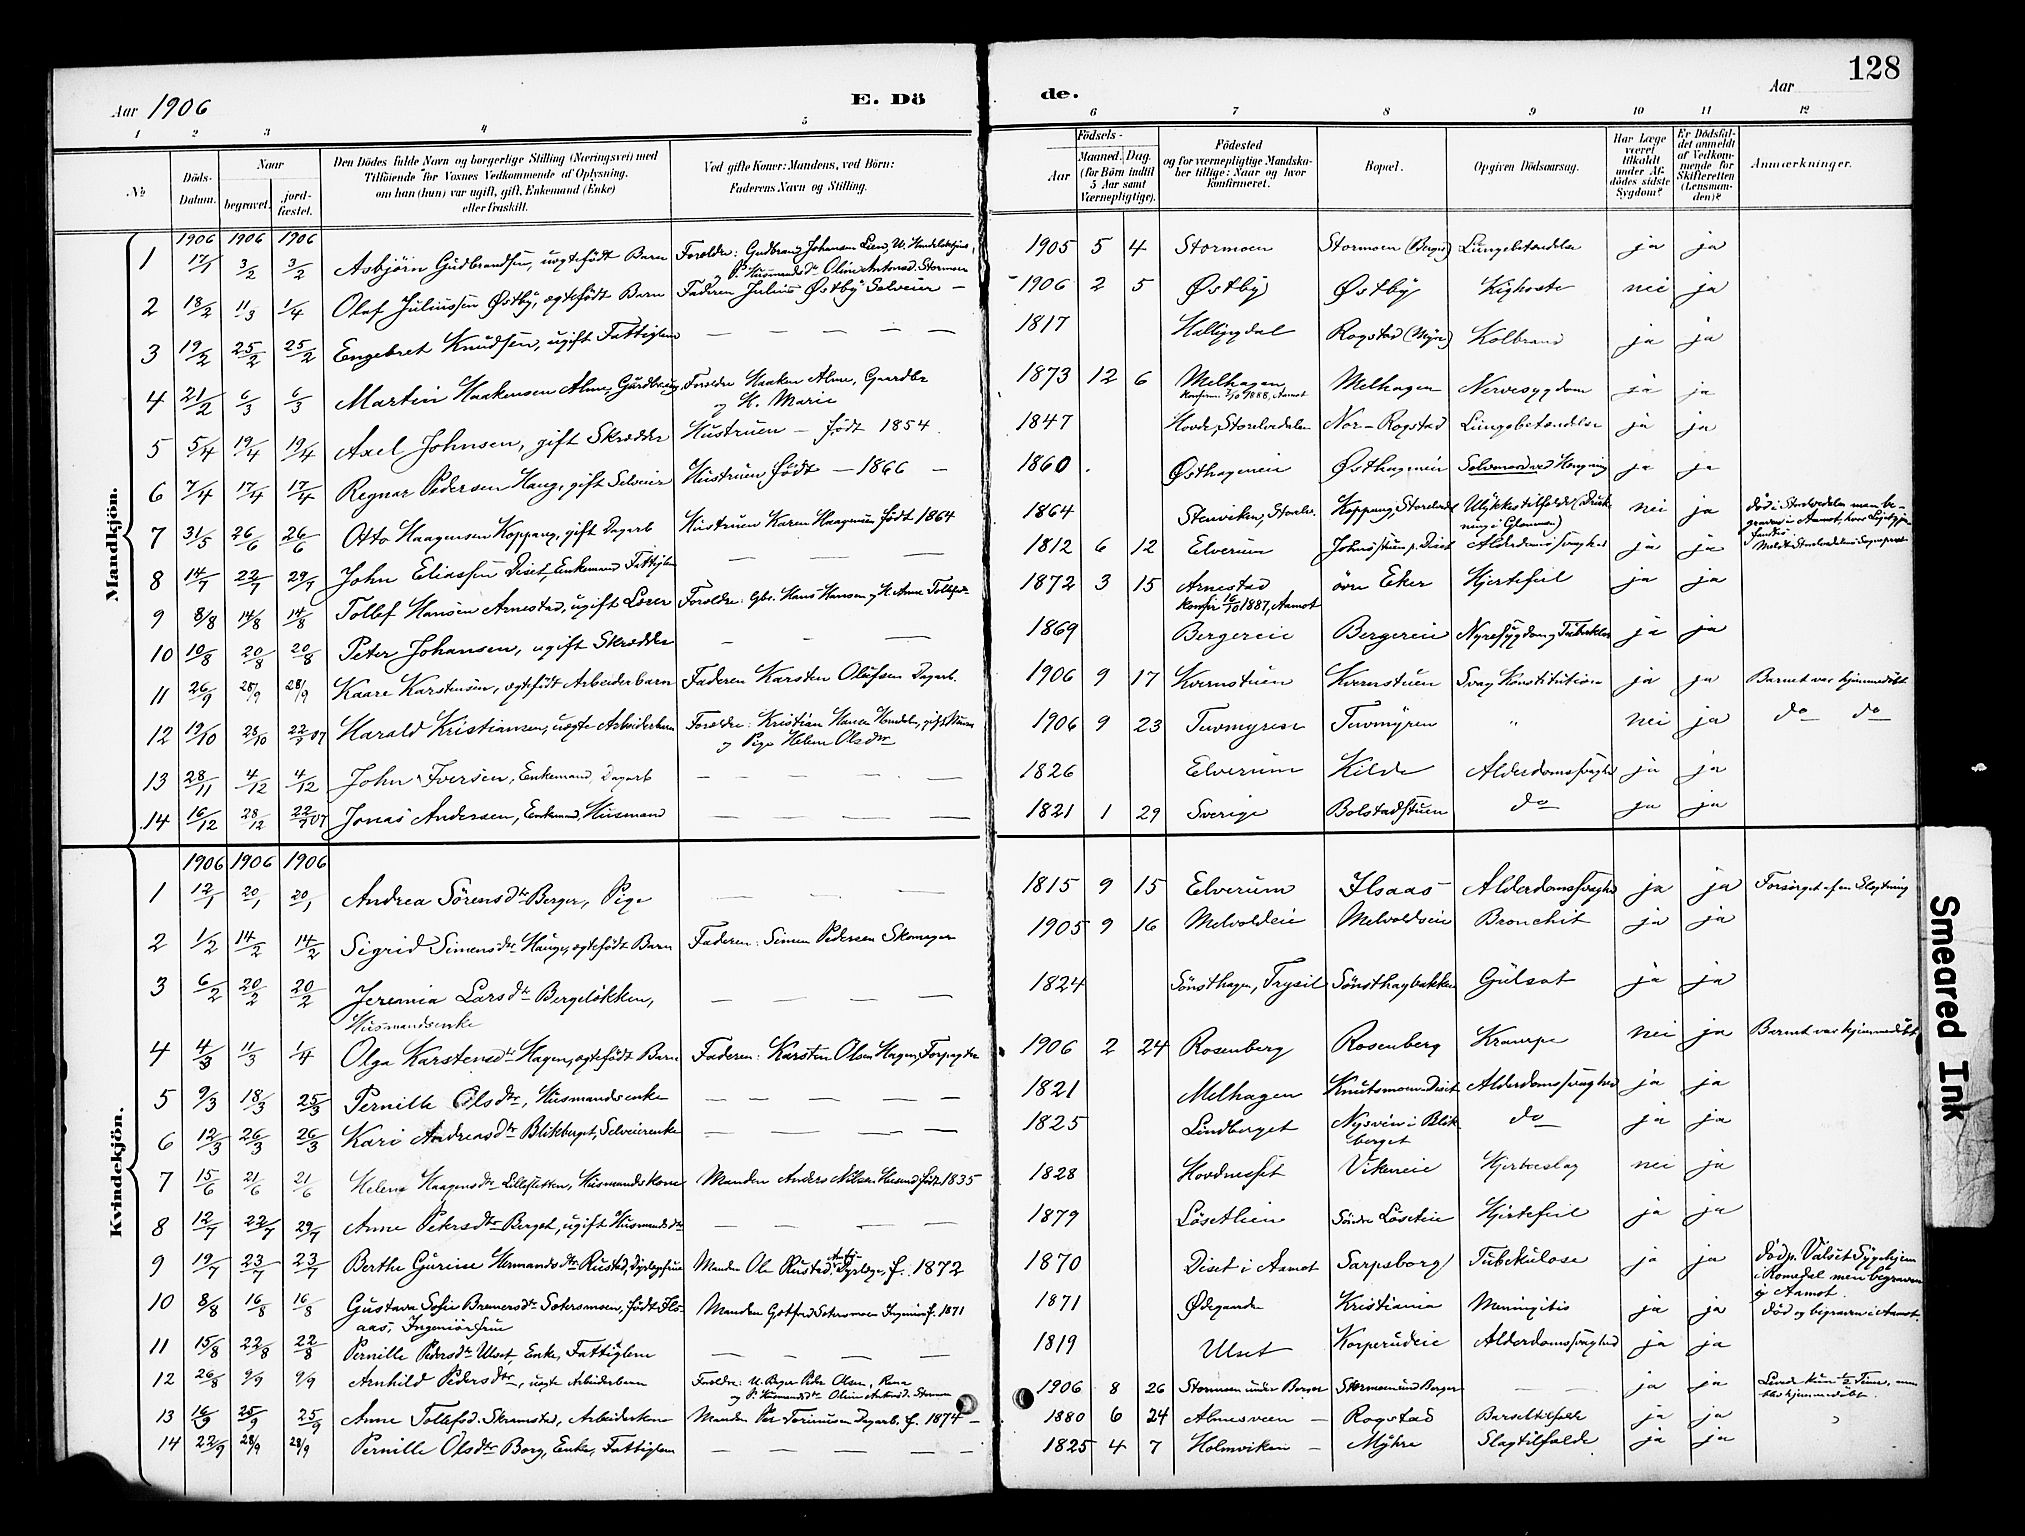 128
Aar 1906
E. Döde.
Aar
1 2 3 4 5 6 7 8 9 10 11 12
No
Döds-Datum.
Naar
begravet.
jord-fæstet.
Den Dödes fulde Navn og borgerlige Stilling (Næringsvei) med
Tilföiende for Voxnes Vedkommende af Oplysning,
om han (hun) var ugift, gift, Enkemand (Enke)
eller fraskilt.
Ved gifte Koner: Mandens, ved Börn:
Faderens Navn og Stilling.
Födsels-
Aar
Maaned. Dag.
(for Börn indtil
5 Aar samt
Værnepligtige).
Födested
og for værnepligtige Mandska-
ber tillige: Naar og hvor
konfirmeret.
Bopæl.
Opgiven Dödsaarsag.
Har Læge
været
tilkaldt
under Af-
dödes sidste
Sygdom?
Er Dödsfal-
det anmeldt
af Vedkom-
mende for
Skifteretten
(Lensman-
den)?
Anmærkninger.
Mandkjön.
1906 1906 1906
1 17/1 3/2 3/2 Asbjörn Gudbrandsen, uægtefödt Barn Forældre: Gudbrand Johansen Lien, 1905 5 4 Stormoen Stormoen (Berger) Lungebetændelse ja ja
og P. Husmandsdtr Oline Antonsd. Stormoen
2 18/2 11/3 1/4 Olaf Juliussen Østby, ægtefödt Barn Faderen Julius Østby Selveier — 1906 2 5 Østby Østby Kighoste nei ja
3 19/2 25/2 25/2 Engebret Knudsen, ugift Fattiglem — — — — — 1817 Hallingdal Rogstad (Myre) Kolbrand ja ja
4 21/2 6/3 6/3 Martin Haakensen Alme, Forældre Haaken Alme, Gaardbr 1873 12 6 Melhagen Melhagen Nervesygdom ja ja
og K. Marie Konfirm. 7/10 1888, Aamot
5 5/4 19/4 19/4 Axel Johnsen, gift Skrædder Hustruen — født 1854. 1847 Hovde, Storelvedalen Nor-Rogstad Lungebetændelse ja ja
6 7/4 17/4 17/4 Regnar Pedersen Haug, gift Selveier Hustruen født — 1866 — 1860. Østhageneie Østhageneie Selvmord ved Hængning ja ja
7 31/5 26/6 26/6 Otto Haagensen Koppang, gift Dagarb Hustruen Karen Haagensen født 1864 1864 Stenviken, Storelv. Koppang, Storelvd Ulykkestilfælde (Druk-
ning i Glommen) nei ja död i Storelvedalen men be-
graven i Aamot, hvor Liget
fandtes.
8 14/7 22/7 29/7 John Eliassen Diset, Enkemand Fattiglem — — — 1812 6 12 Elverum Johnsstuen p. Diset Alderdomssvaghed ja ja
9 8/8 14/8 14/8 Tollef Hansen Arnestad, ugift Lærer Forældre: Gbr. Hans Hansen og K. Anne Tollefsd. 1872 3 15 Arnestad övre Eker Hjertefeil ja ja
Konfir 16/10 1887, Aamot
10 10/8 20/8 20/8 Peter Johansen, ugift Skrædder — — — 1869 Bergereie Bergereie Nyresygdom og Tuberkler ja ja
11 26/9 28/9 28/9 Kaare Karstensen, ægtefödt Arbeiderbarn Faderen Karsten Olufsen Dagarb. 1906 9 17 Kvernstuen Kvernstuen Svag Konstitution ja ja Barnet var hjemmedöbt
12 19/10 28/10 22/7 07 Harald Kristiansen, uægte Arbeiderbarn Forældre: Kristian Hansen 1906 9 23 Tuvmyren Tuvmyren " nei ja do do
og Pige Helene Olsdtr
13 28/11 4/12 4/12 John Iversen, Enkemand, Dagarb — — — — — 1826 Elverum Kilde Alderdomssvaghed ja ja
14 16/12 28/12 22/7 07 Jonas Andersen, Enkemand, Husmand — — — — — 1821 1 29 Sverige Bolstadstuen do ja ja
Kvindekjön.
1906 1906 1906
1 12/1 20/1 20/1 Andrea Sörensdtr Berger, Pige — — — 1815 9 15 Elverum Ilsaas Alderdomssvaghed ja ja Forsörget af en Slægtning
2 1/2 14/2 14/2 Sigrid Simensdtr Hauge, ægtefödt Barn Faderen: Simen Pedersen Skomager 1905 9 16 Melvoldeie Melvoldseie Bronchit ja ja
3 6/2 20/2 20/2 Jeremia Larsdtr Bergelökken,
Husmandsenke — — — — 1824 Sönsthagen, Trysil Sönsthagbakken Gulsot ja ja
4 4/3 11/3 1/4 Olga Karstensdtr Hagen, ægtefödt Barn Faderen: Karsten Olsen Hagen, Forpagter 1906 2 24 Rosenberg Rosenberg Krampe nei ja Barnet var hjemmedöbt
5 9/3 18/3 25/3 Pernille Olsdtr, Husmandsenke — — — — — 1821 Melhagen Knutsmoen-Diset Alderdomssvaghed ja ja
6 12/3 26/3 26/3 Kari Andreasdtr Blikberget, Selveierenke — — — — — 1825 Lindberget Nysveen i Blik-
berget do ja ja
7 15/6 21/6 21/6 Helene Haagensdtr Lillesætten, Husmandskone Manden Anders Nilsen Husmd, födt 1835 1828 Hovdneset Vikeneie Hjerteslag nei ja
8 12/7 22/7 29/7 Anne Petersdtr Berget, ugift Husmandsdtr — — — — 1879 Løsetlien Söndre Løseteie Hjertefeil ja ja
9 19/7 23/7 23/7 Berthe Gurine Hermandsdtr Rustad, Dyrlægefrue Manden Ole Rustad, Dyrlæge, f. 1872 1870 Diset i Aamot Sarpsborg Tuberkulose ja ja död p. Valset Sygehjem
i Romedal men begraven
i Aamot.
10 8/8 16/8 16/8 Gustava Sofie Bremersdtr Sætersmoen, födt Flo-
aas, Ingeniörfrue Manden Gotfred Sætersmoen Ingeniör f. 1871 1871 Ødegaarden Kristiania Meningitis ja ja död og begraven i Aamot.
11 15/8 22/8 22/8 Pernille Pedersdtr Ulset, Enke, Fattiglem — — — — 1819 Ulset Korperudeie Alderdomssvaghed ja ja
12 26/8 9/9 9/9 Arnhild Pedersdtr, uægte Arbeiderbarn Forældre: U. Peder Olsen, Rena 1906 8 26 Stormoen under Berger Stormoen und Berger — ja ja Levede kun 1/2 Time, men
blev hjemmedöbt
og P. Husmandsdtr Oline Antonsd. Stormoen
13 16/9 25/9 25/9 Anne Tollefsd. Skramstad, Arbeiderkone Manden Per Torinusen Dagarb. f. 1874 — 1880 6 24 Almesveen — Rogstad Barseltilfælde ja ja
14 22/9 28/9 28/9 Pernille Olsdtr Borg, Enke, Fattiglem — — — — — 1825 4 7 Holmviken — Myhre Slagtilfælde ja ja
Smeared Ink